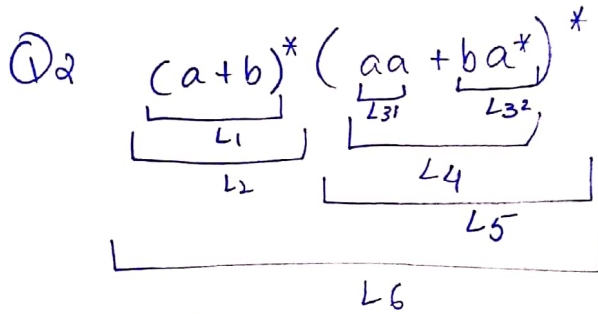 Q2 (a+b)* (aa + ba*)*
L31 L32
L1
L2 L4
L5
L6